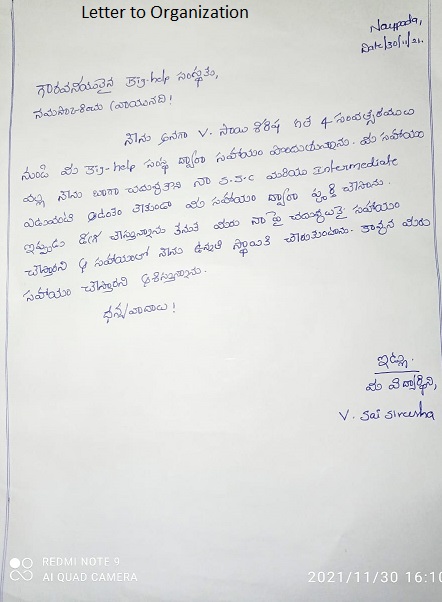 Letter to Organization
Naupada,
Date/30/11/21.
గౌరవనీయులైన Big-help సంస్థకు,
నమస్కరించి వ్రాయునది!
నేను అనగా V. సాయి శిరిష గత 4 సంవత్సరములు
నుండి మీ Big-help సంస్థ ద్వారా సహాయం పొందుయున్నాను. మీ సహాయం
వల్ల నేను బాగా చదువుకొని నా S.S.C మరియు Intermediate
ఎటువంటి ఆటంకం లేకుండా మీ సహాయం ద్వారా పూర్తి చేసాను.
ఇప్పుడు డిగ్రీ చేస్తున్నాను కనుక మీరు నా పై చదువులకై సహాయం
చేస్తారని ఆ సహాయంతో నేను ఉన్నత స్థాయికి చేరుకుంటాను. కావున మీరు
సహాయం చేస్తారని ఆశిస్తున్నాను.
ధన్యవాదాలు!
ఇట్లు.
మీ విద్యార్థిని,
V. Sai Sireesha
REDMI NOTE 9
AI QUAD CAMERA
2021/11/30 16:10